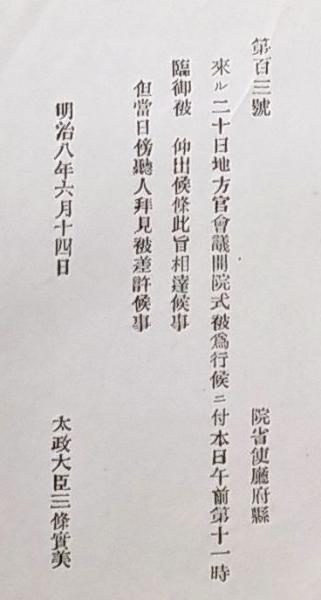 第百三號
院省使廳府縣
來ル二十日地方官會議開院式被爲行候ニ付本日午前第十一時
臨御被　仰出候條此旨相達候事
但當日傍聽人拜見被差許候事
明治八年六月十四日
太政大臣三條實美